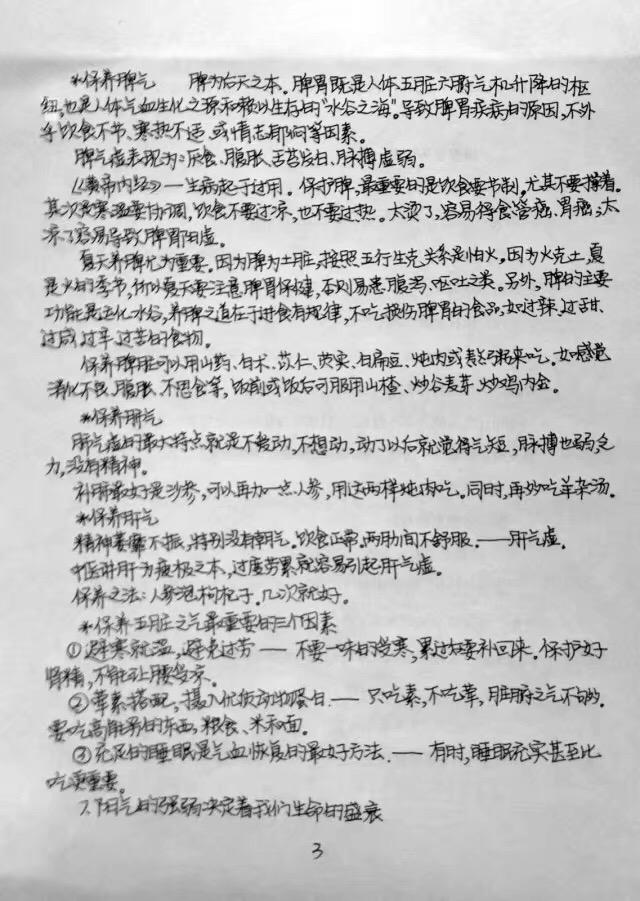 *保养脾气 脾为后天之本。脾胃既是人体五脏六腑气机升降的枢
纽,也是人体气血生化之源和赖以生存的"水谷之海"。导致脾胃疾病的原因,不外
乎饮食不节、寒热不适、或情志郁闷等因素。
脾气虚表现为:厌食、腹胀、舌苔发白、脉搏虚弱。
《黄帝内经》—生病起于过用。保护脾,最重要的是饮食要节制,尤其不要撑着。
其次是寒温要协调,饮食不要过凉,也不要过热。太烫了,容易得食管癌、胃癌;太
凉了容易导致脾胃阳虚。
夏天养脾尤为重要。因为脾为土脏,按照五行生克关系是怕火。因为火克土,夏
是火的季节,所以夏天要注意脾胃保健,否则易患腹泻、呕吐之类。另外,脾的主要
功能是运化水谷,养脾之道在于进食有规律,不吃损伤脾胃的食品,如过辣、过甜、
过咸、过辛、过苦的食物。
保养脾脏可以用山药、白术、苡仁、芡实、白扁豆、炖肉或熬粥来吃。如感觉
消化不良、腹胀、不思食等,饭前或饭后可服用山楂、炒谷麦芽、炒鸡内金。
*保养肺气
肺气虚的最大特点就是不爱动,不想动,动了以后就觉得气短,脉搏也弱,乏
力,没有精神。
补肺最好是沙参,可以再加一点人参,用这两样炖肉吃。同时,再炒吃羊杂汤。
*保养肝气
精神萎靡不振,特别没有朝气。饮食正常。两肋间不舒服。——肝气虚。
中医讲肝为疲极之本,过度劳累就容易引起肝气虚。
保养之法:人参泡枸杞子。几次就好。
*保养五脏之气最重要的三个因素
①避寒就温,避免过劳——不要一味的受寒,累过如要补回来。保护好
肾精,不能让腰受凉。
②荤素搭配,摄入优质动物蛋白。——只吃素,不吃荤,脏腑之气不够。
要吃高能易的东西,粮食、米和面。
③充足的睡眠是气血恢复的最好方法。——有时,睡眠充实甚至比
吃更重要。
7.阳气的强弱决定着我们生命的盛衰
3